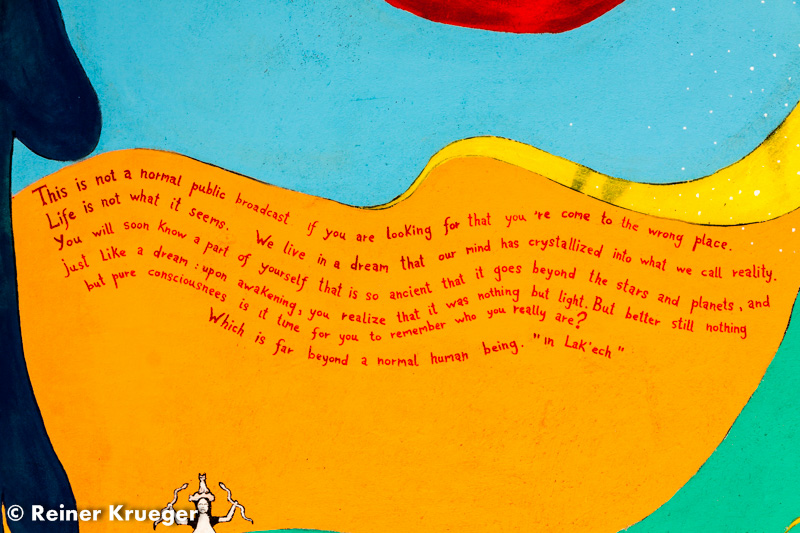 This is not a normal public broadcast If you are looking for that you 're come to the wrong place.
Life is not what it seems. We live in a dream that our mind has crystallized into what we call reality.
You will soon know a part of yourself that is so ancient that it goes beyond the stars and planets, and
just like a dream: upon awakening, you realize that it was nothing but light. But better still nothing
but pure consciousnees is it time for you to remember who you really are?
Which is far beyond a normal human being. "in Lak'ech"
© Reiner Krueger